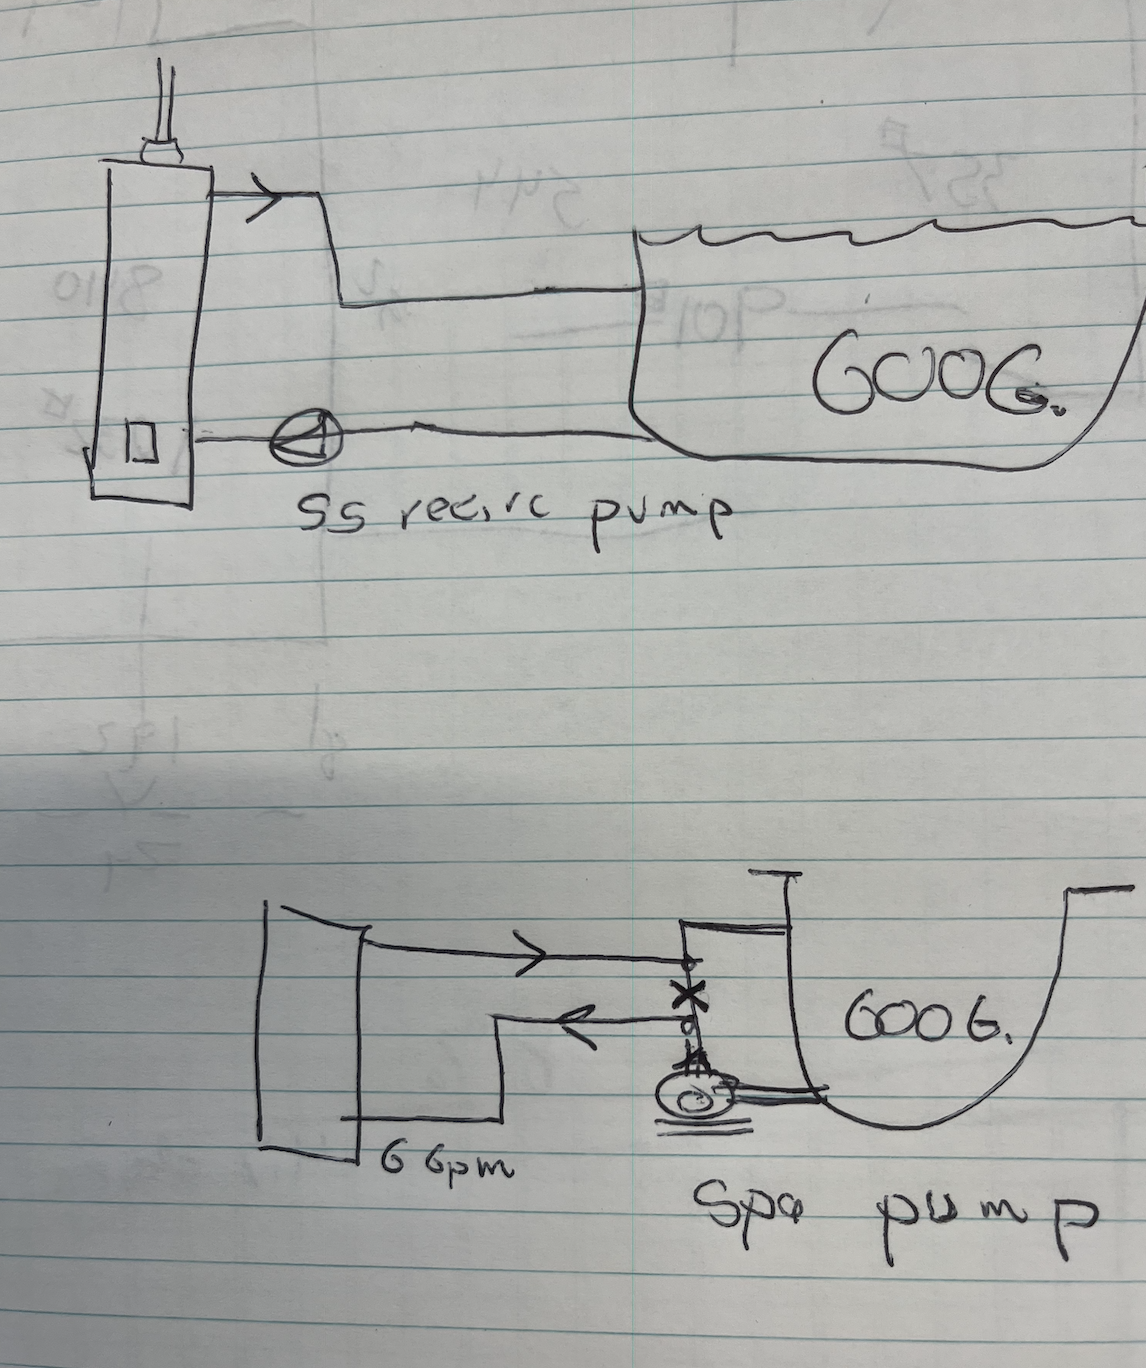 600G.
SS recirc pump
600 G.
6 Gpm
Spa pump